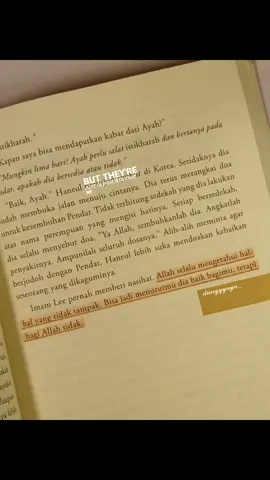 istikharah."
Kapan saya bisa mendapatkan kabar dari Ayah?"
"Mungkin lima hari! Ayah perlu salat istikharah dan bertanya pada
apakah dia bersedia atau tidak."
"Baik, Ayah." Haneul di Korea. Setidaknya dia
sudah membuka jalan menuju cintanya. Dia terus merangkai doa
untuk kesembuhan Pendar. Tidak terhitung sedekah yang dia lakukan
atas nama perempuan yang mengisi hatinya. Setiap bersedekah,
dia selalu menyebut doa, "Ya Allah, sembuhkanlah dia. Angkatlah
penyakitnya. Ampunilah seluruh dosanya." Alih-alih meminta agar
berjodoh dengan Pendar, Haneul lebih suka mendoakan kebaikan
seseorang yang dikaguminya.
Imam Lee pernah memberi nasihat, Allah selalu mengetahui hal-
hal yang tidak tampak. Bisa jadi menurutmu dia baik bagimu, tetapi
bagi Allah tidak.
BUT THEY'RE